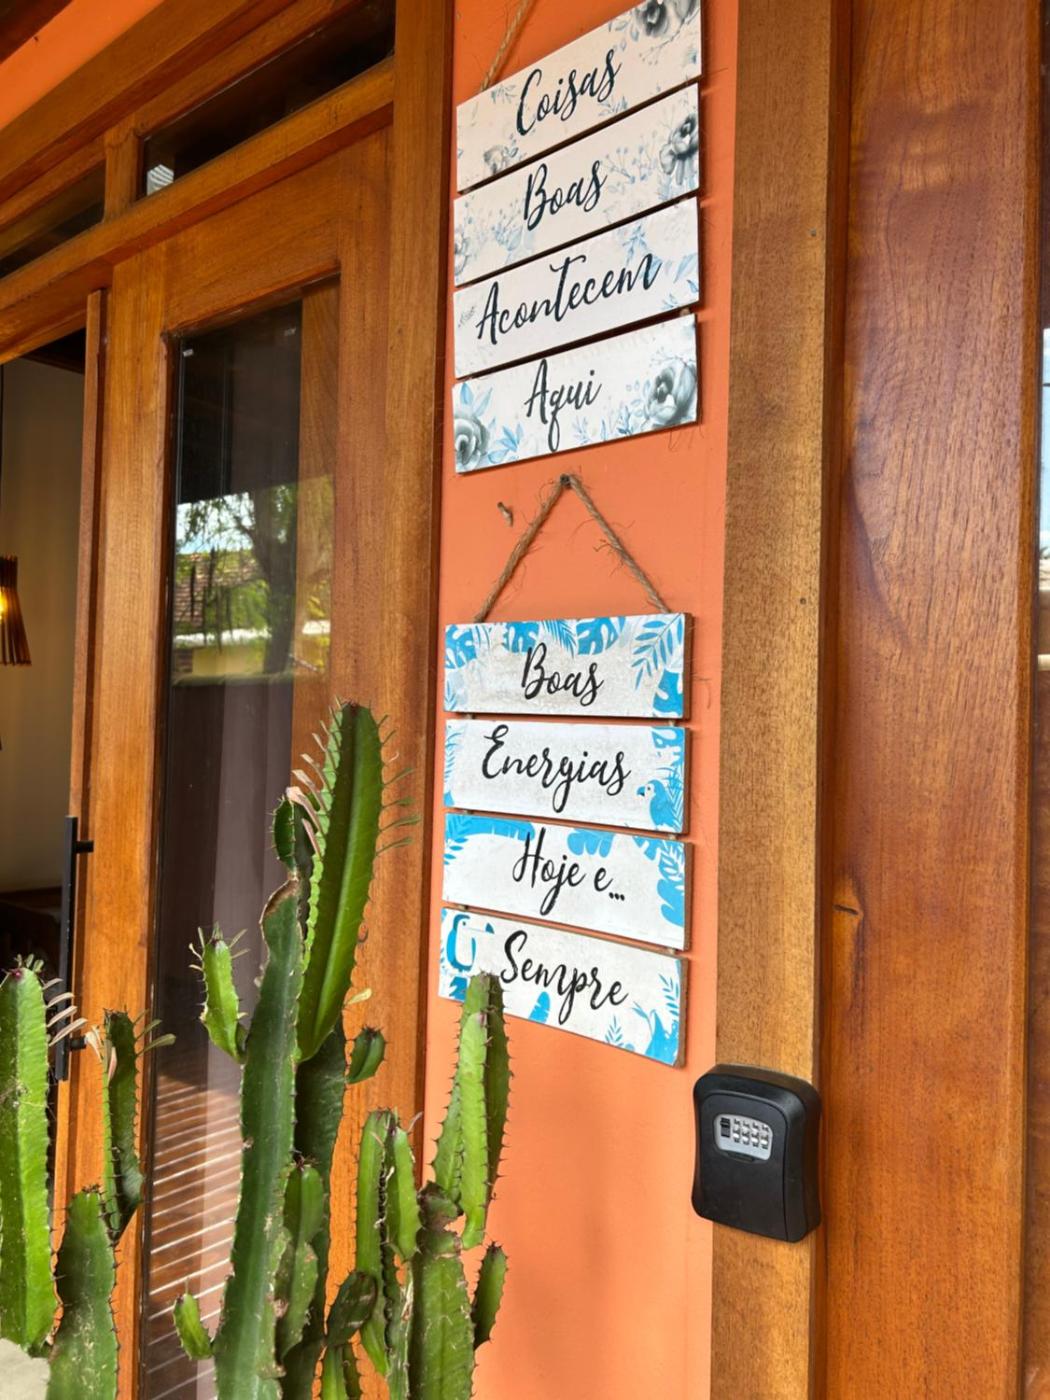 Coisas
Boas
Acontecem
Aqui
Boas
Energias
Hoje e...
Sempre